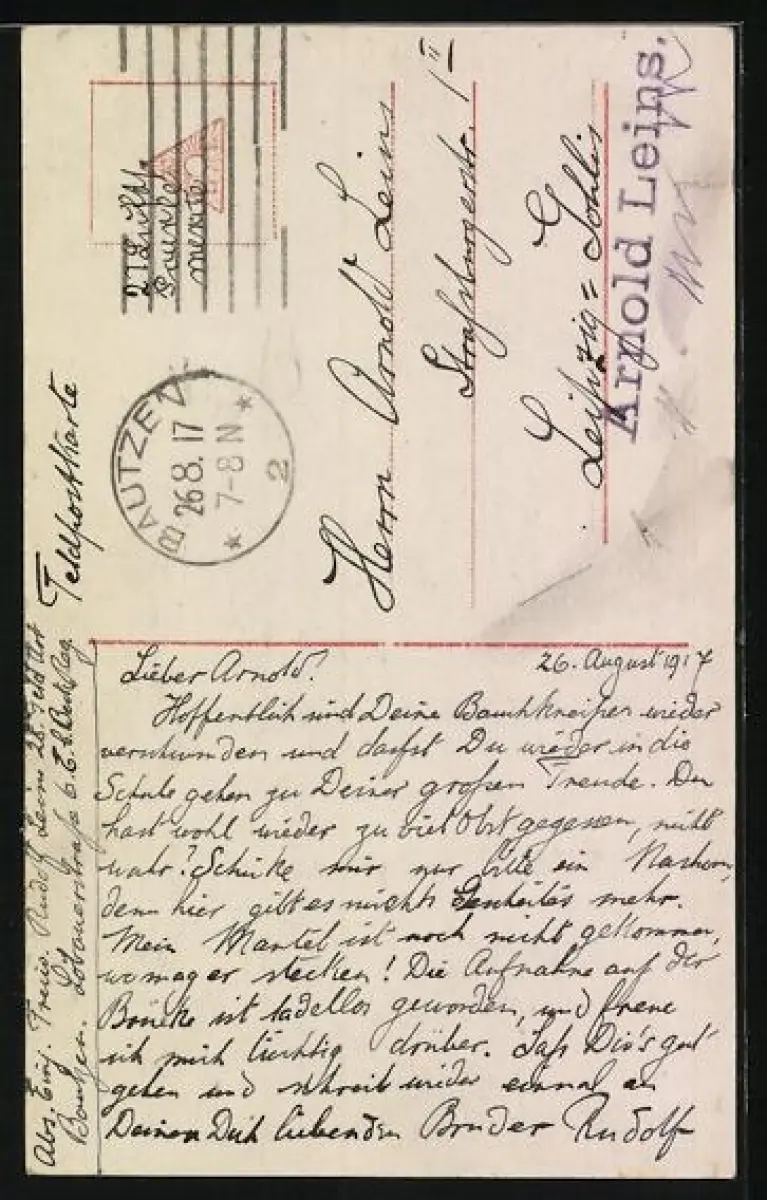 Feldpostkarte
BAUTZEN
26.8.17
7-8 N
2
Herrn Arnold Leins
Strassburgerstr. 1 II
Leipzig = Gohlis
Arnold Leins.
26. August 1917
Lieber Arnold!
Hoffentlich sind Deine Bauchkneifen wieder
verschwunden und darfst Du wieder in die
Schule gehen zu Deiner großen Freude. Du
hast wohl wieder zu viel Obst gegessen, nicht
wahr? Schicke mir nur bitte ein
denn hier gibt es nichts mehr.
Mein Mantel ist noch nicht gekommen,
wo mag er stecken! Die Aufnahme auf der
Brücke ist tadellos geworden, und freue
ich mich tüchtig drüber. Laß Dir's gut
gehen und schreib wieder einmal an
Deinen Dich liebenden Bruder Rudolf
Abs. Einj. Freiw. Rudolf Leins 28. Feld Art
Bautzen. Löbauerstraße 6.